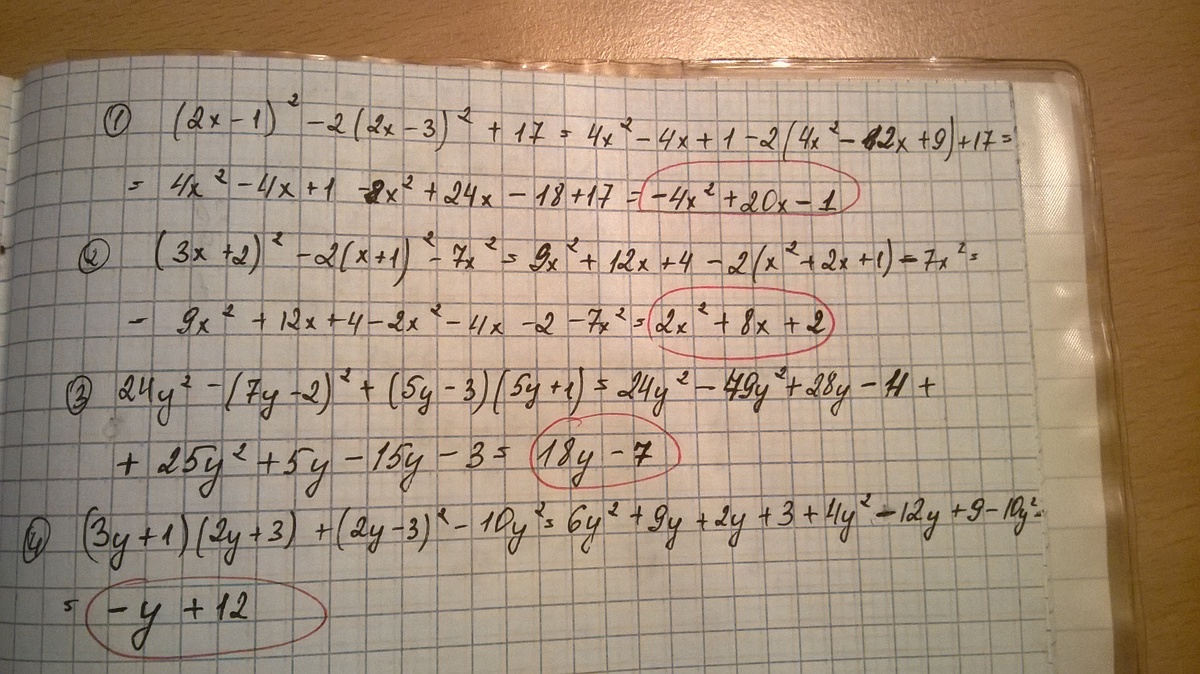 ① (2x-1)² -2(2x-3)² +17 = 4x² -4x+1 -2(4x² -12x+9)+17 =
= 4x² -4x+1 -8x² +24x -18+17 = -4x² +20x -1
② (3x+2)² -2(x+1)² -7x² = 9x² +12x+4 -2(x² +2x+1) -7x² =
- 9x² +12x+4 -2x² -4x -2 -7x² = 2x² +8x+2
③ 24y² -(7y-2)² +(5y-3)(5y+1) = 24y² -49y² +28y -4 +
+ 25y² +5y -15y -3 = 18y -7
④ (3y+1)(2y+3) +(2y-3)² -10y² = 6y² +9y+2y+3+4y² -12y+9-10y² =
= -y +12